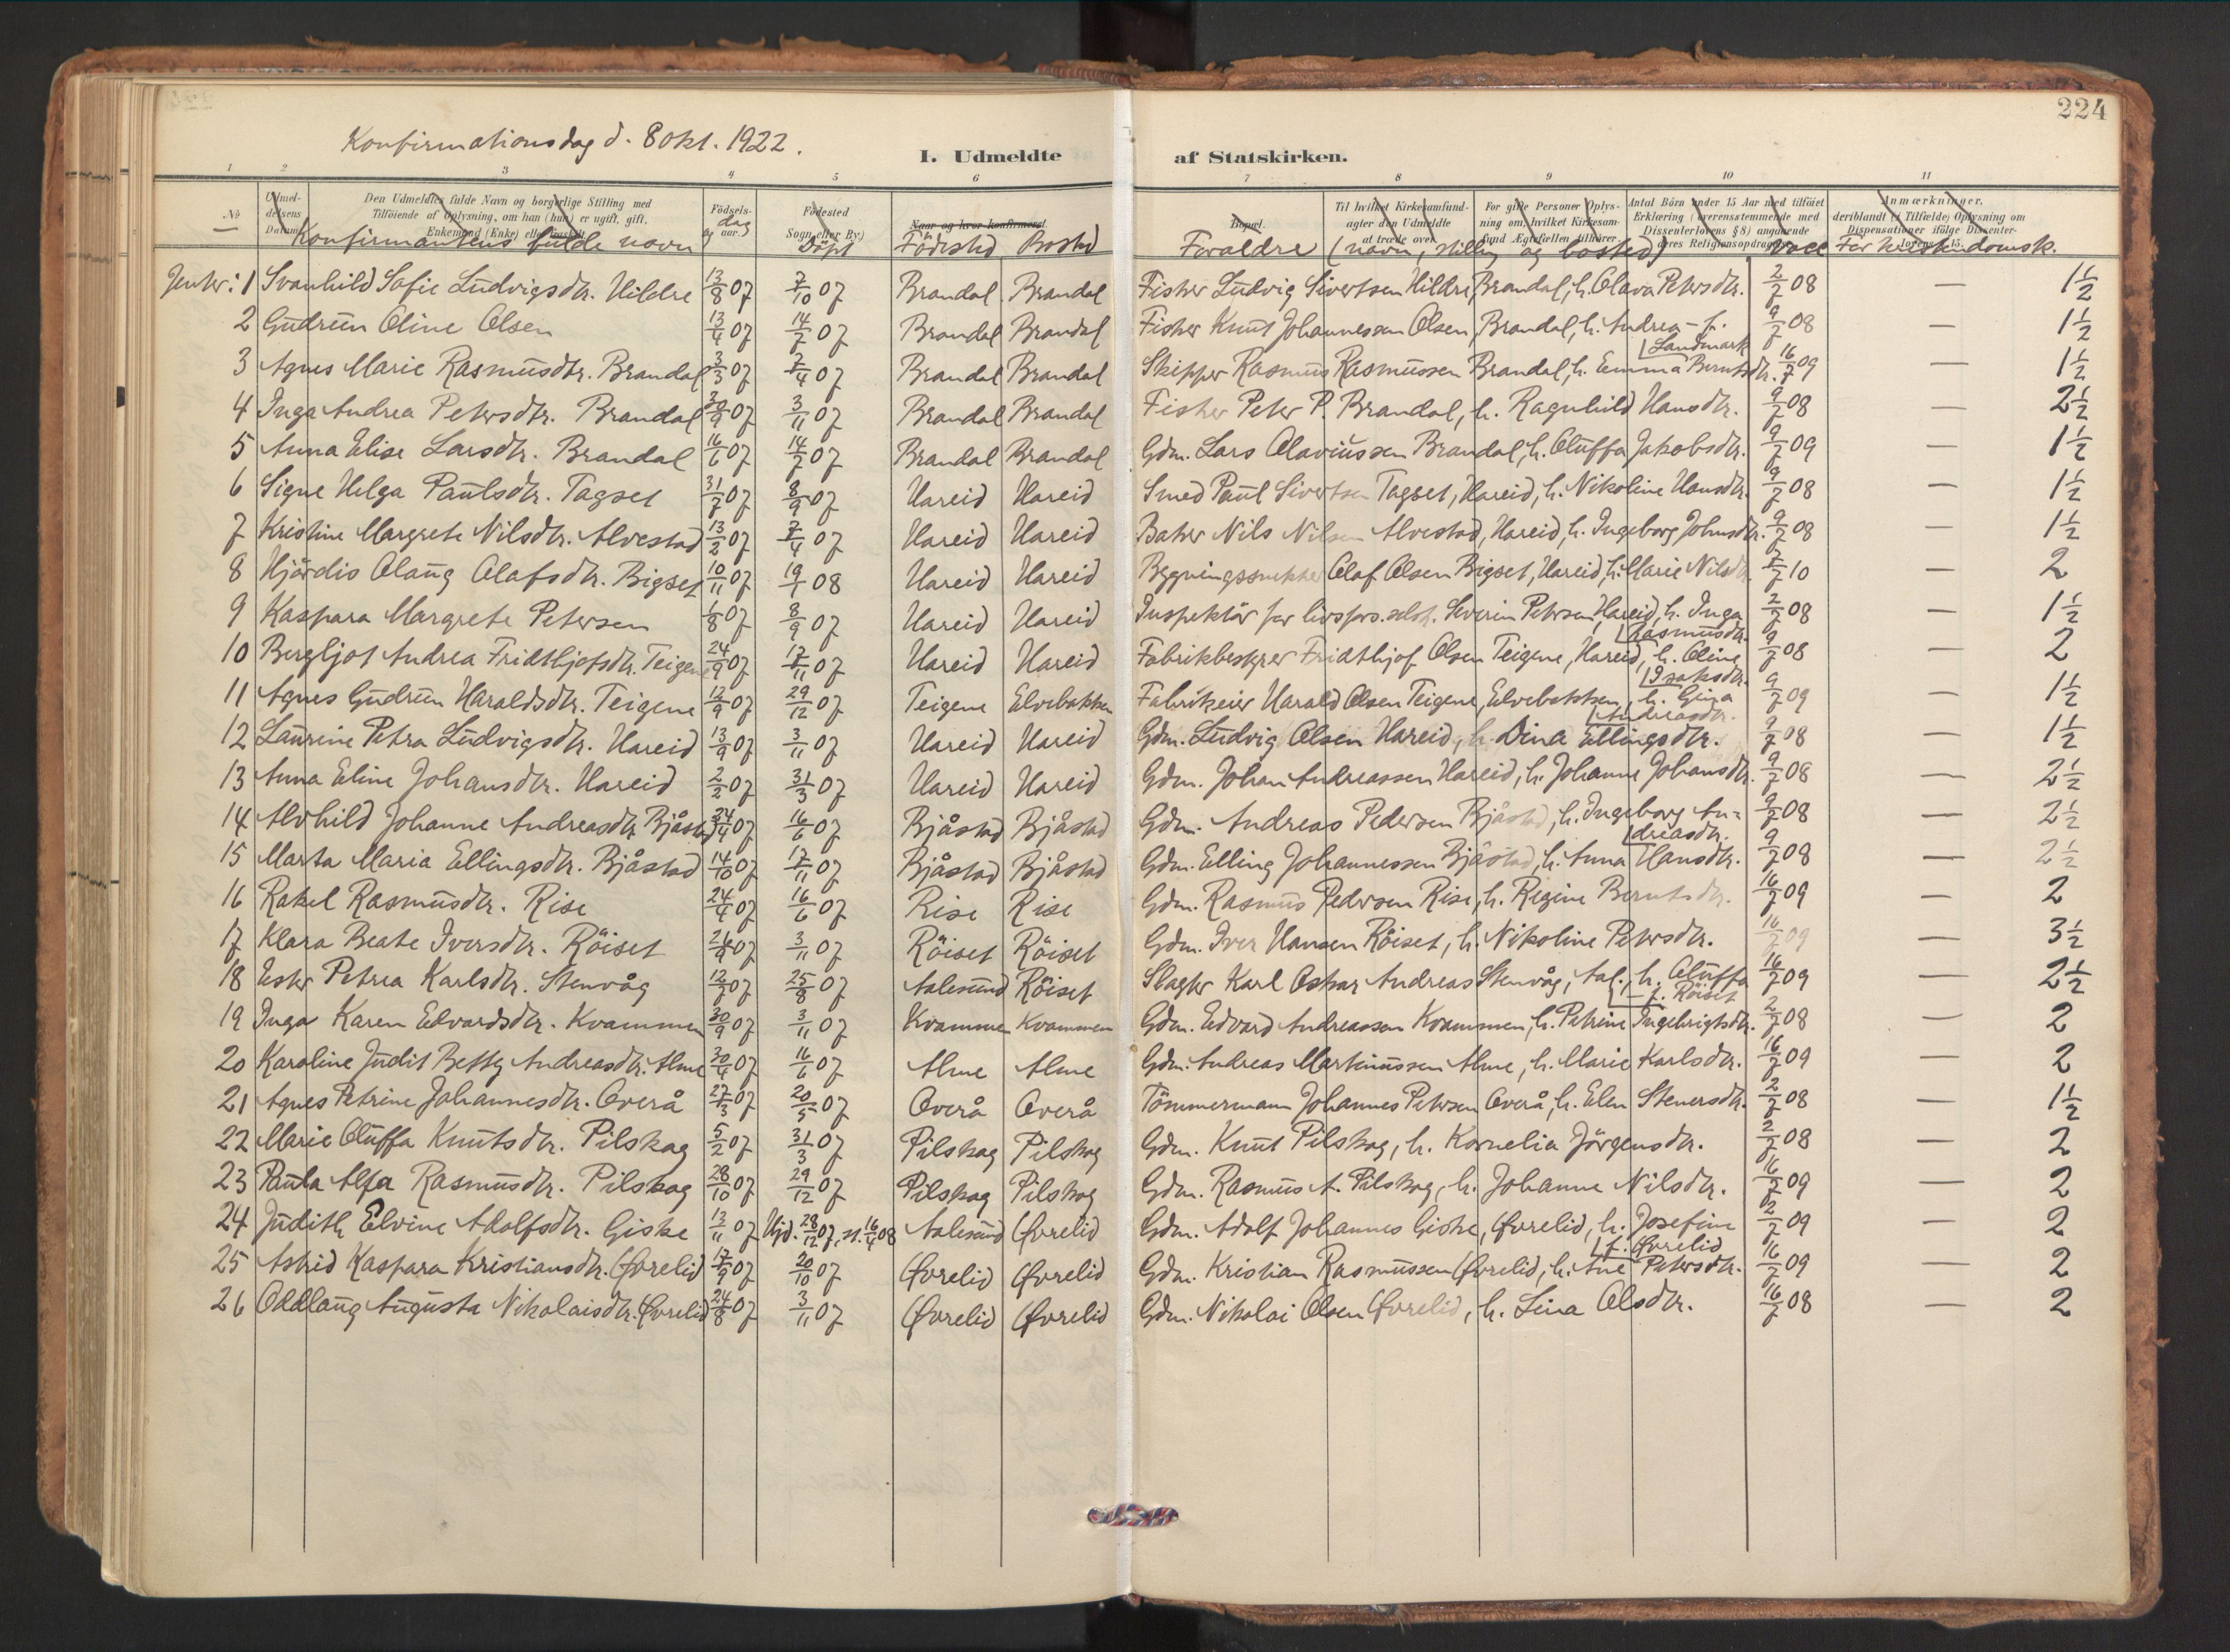 224
Konfirmationsdag d. 8 okt. 1922.
I. Udmeldte af Statskirken.
1 2 3 4 5 6 7 8 9 10 11
№ Udmeldelsens Datum. Den Udmeldtes fulde Navn og borgerlige Stilling med Tilføiende af Oplysning, om han (hun) er ugift, gift, Enkemand (Enke) eller fraskilt. Fødsels- dag og aar. Fødested Sogn eller By.) Naar og hvor konfirmeret. Bopæl. Til hvilket Kirkesamfund agter den Udmeldte at træde over. For gifte Personer Oplysning om, hvilket Kirkesamfund Ægtefællen tilhører. Antal Børn under 15 Aar med tilføiet Erklæring (overensstemmende med Dissenterlovens § 8) angaaende deres Religionsopdragelse. Anmærkninger, deriblandt (i Tilfælde) Oplysning om Dispensationer ifølge Dissenterlovens § 15.
Konfirmantens fulde navn Döpt Födested Bosted Foraldre (navn, stilling og bosted) Vacc. Far kristendomsk.
Jenter: 1 Svanhild Sofie Ludvigsdtr. Hildre 13/8 07 7/10 07 Brandal Brandal Fisker Ludvig Sivertsen Hildre, Brandal, h. Olava Petersdtr. 2/7 08 — 1 1/2
2 Gudrun Oline Olsen 13/4 07 14/7 07 Brandal Brandal Fisker Knut Johannessen Olsen, Brandal, h. Andrea – f. Landmark 9/7 08 — 1 1/2
3 Agnes Marie Rasmusdtr. Brandal 3/3 07 7/4 07 Brandal Brandal Skipper Rasmus Rasmussen Brandal, h. Emma Berntsdtr. 16/7 09 — 1 1/2
4 Inga Andrea Petersdtr. Brandal 30/9 07 3/11 07 Brandal Brandal Fisker Peter P. Brandal, h. Ragnhild Hansdtr. 9/7 08 — 2 1/2
5 Anna Elise Larsdtr. Brandal 16/6 07 14/7 07 Brandal Brandal Gdm. Lars Olaviussen Brandal, h. Oluffa Jakobsdtr. 9/7 09 — 1 1/2
6 Signe Helga Paulsdtr. Tagset 31/7 07 8/9 07 Hareid Hareid Smed Paul Sivertsen Tagset, Hareid, h. Nikoline Hansdtr. 9/7 08 — 1 1/2
7 Kristine Margrete Nilsdtr. Alvestad 13/2 07 7/4 07 Hareid Hareid Baker Nils Nilsen Alvestad, Hareid, h. Ingeborg Johnsdtr. 9/7 08 — 1 1/2
8 Hjördis Olaug Olafsdtr. Bigset 10/11 07 19/1 08 Hareid Hareid Bygningssnekker Olaf Olsen Bigset, Hareid, h. Marie Nilsdtr. 2/7 10 — 2
9 Kaspara Margrete Petersen 1/8 07 8/9 07 Hareid Hareid Inspektör for livsfors.selsk. Severin Petersen, Hareid, h. Inga Rasmusdtr. 2/7 08 — 1 1/2
10 Bergljot Andrea Fridthjofsdtr. Teigene 24/9 07 17/11 07 Hareid Hareid Fabrikbestyrer Fridthjof Olsen Teigene, Hareid, h. Oline Isaksdtr. 9/7 08 — 2
11 Agnes Gudrun Haraldsdtr. Teigene 12/9 07 29/12 07 Teigene Elvebakken Fabrikeier Harald Olsen Teigene, Elvebakken, h. Gina Andreasdtr. 9/7 09 — 1 1/2
12 Laurine Petra Ludvigsdtr. Hareid 13/9 07 3/11 07 Hareid Hareid Gdm. Ludvig Olsen Hareid, h. Dina Ellingsdtr. 9/7 08 — 1 1/2
13 Anna Eline Johansdtr. Hareid 2/2 07 31/3 07 Hareid Hareid Gdm. Johan Andreassen Hareid, h. Johanne Johansdtr. 9/7 08 — 2 1/2
14 Alvhild Johanne Andreasdtr. Bjåstad 24/4 07 16/6 07 Bjåstad Bjåstad Gdm. Andreas Pedersen Bjåstad, h. Ingeborg Andreasdtr. 9/7 08 — 2 1/2
15 Marta Maria Ellingsdtr. Bjåstad 14/10 07 17/11 07 Bjåstad Bjåstad Gdm. Elling Johannessen Bjåstad, h. Anna Hansdtr. 9/7 08 — 2 1/2
16 Rakel Rasmusdtr. Rise 24/4 07 16/6 07 Rise Rise Gdm. Rasmus Pedersen Rise, h. Regine Berntsdtr. 16/7 09 — 2
17 Klara Beate Iversdtr. Röiset 07 3/11 07 Röiset Röiset Gdm. Iver Hansen Röiset, h. Nikoline Petersdtr. 16/7 09 — 3 1/2
18 Ester Petrea Karlsdtr. Stenvåg 12/7 07 25/8 07 Aalesund Röiset Slagter Karl Oskar Andreas Stenvåg, Aal., h. Oluffa – f. Röiset 16/7 09 — 2 1/2
19 Inga Karen Edvardsdtr. Kvammen 30/9 07 3/11 07 Kvammen Kvammen Gdm. Edvard Andreassen Kvammen, h. Petrine Ingebrigtsdtr. 2/7 08 — 2
20 Karoline Judit Betty Andreasdtr. Alme 30/4 07 16/6 07 Alme Alme Gdm. Andreas Martinussen Alme, h. Marie Karlsdtr. 16/7 09 — 2
21 Agnes Petrine Johannesdtr. Overå 27/3 07 20/5 07 Overå Overå Tömmermann Johannes Petersen Overå, h. Elen Stenersdtr. 2/7 08 — 1 1/2
22 Marie Oluffa Knutsdtr. Pilskog 5/2 07 31/3 07 Pilskog Pilskog Gdm. Knut Pilskog, h. Kornelia Jörgensdtr. 2/7 08 — 2
23 Paula Alfa Rasmusdtr. Pilskog 28/10 07 29/12 07 Pilskog Pilskog Gdm. Rasmus A. Pilskog, h. Johanne Nilsdtr. 16/7 09 — 2
24 Judith Elvine Adolfsdtr. Giske 13/11 07 Hjd. 28/12 07, st. 16/4 08 Aalesund Øvrelid Gdm. Adolf Johannes Giske, Øvrelid, h. Josefine f. Øvrelid 2/7 09 — 2
25 Astrid Kaspara Kristiansdtr. Øvrelid 17/9 07 20/10 07 Øvrelid Øvrelid Gdm. Kristian Rasmussen Øvrelid, h. Ane Petersdtr. 16/7 09 — 2
26 Oddlaug Augusta Nikolaisdtr. Øvrelid 24/8 07 3/11 07 Øvrelid Øvrelid Gdm. Nikolai Olsen Øvrelid, h. Lina Olsdtr. 16/7 08 — 2